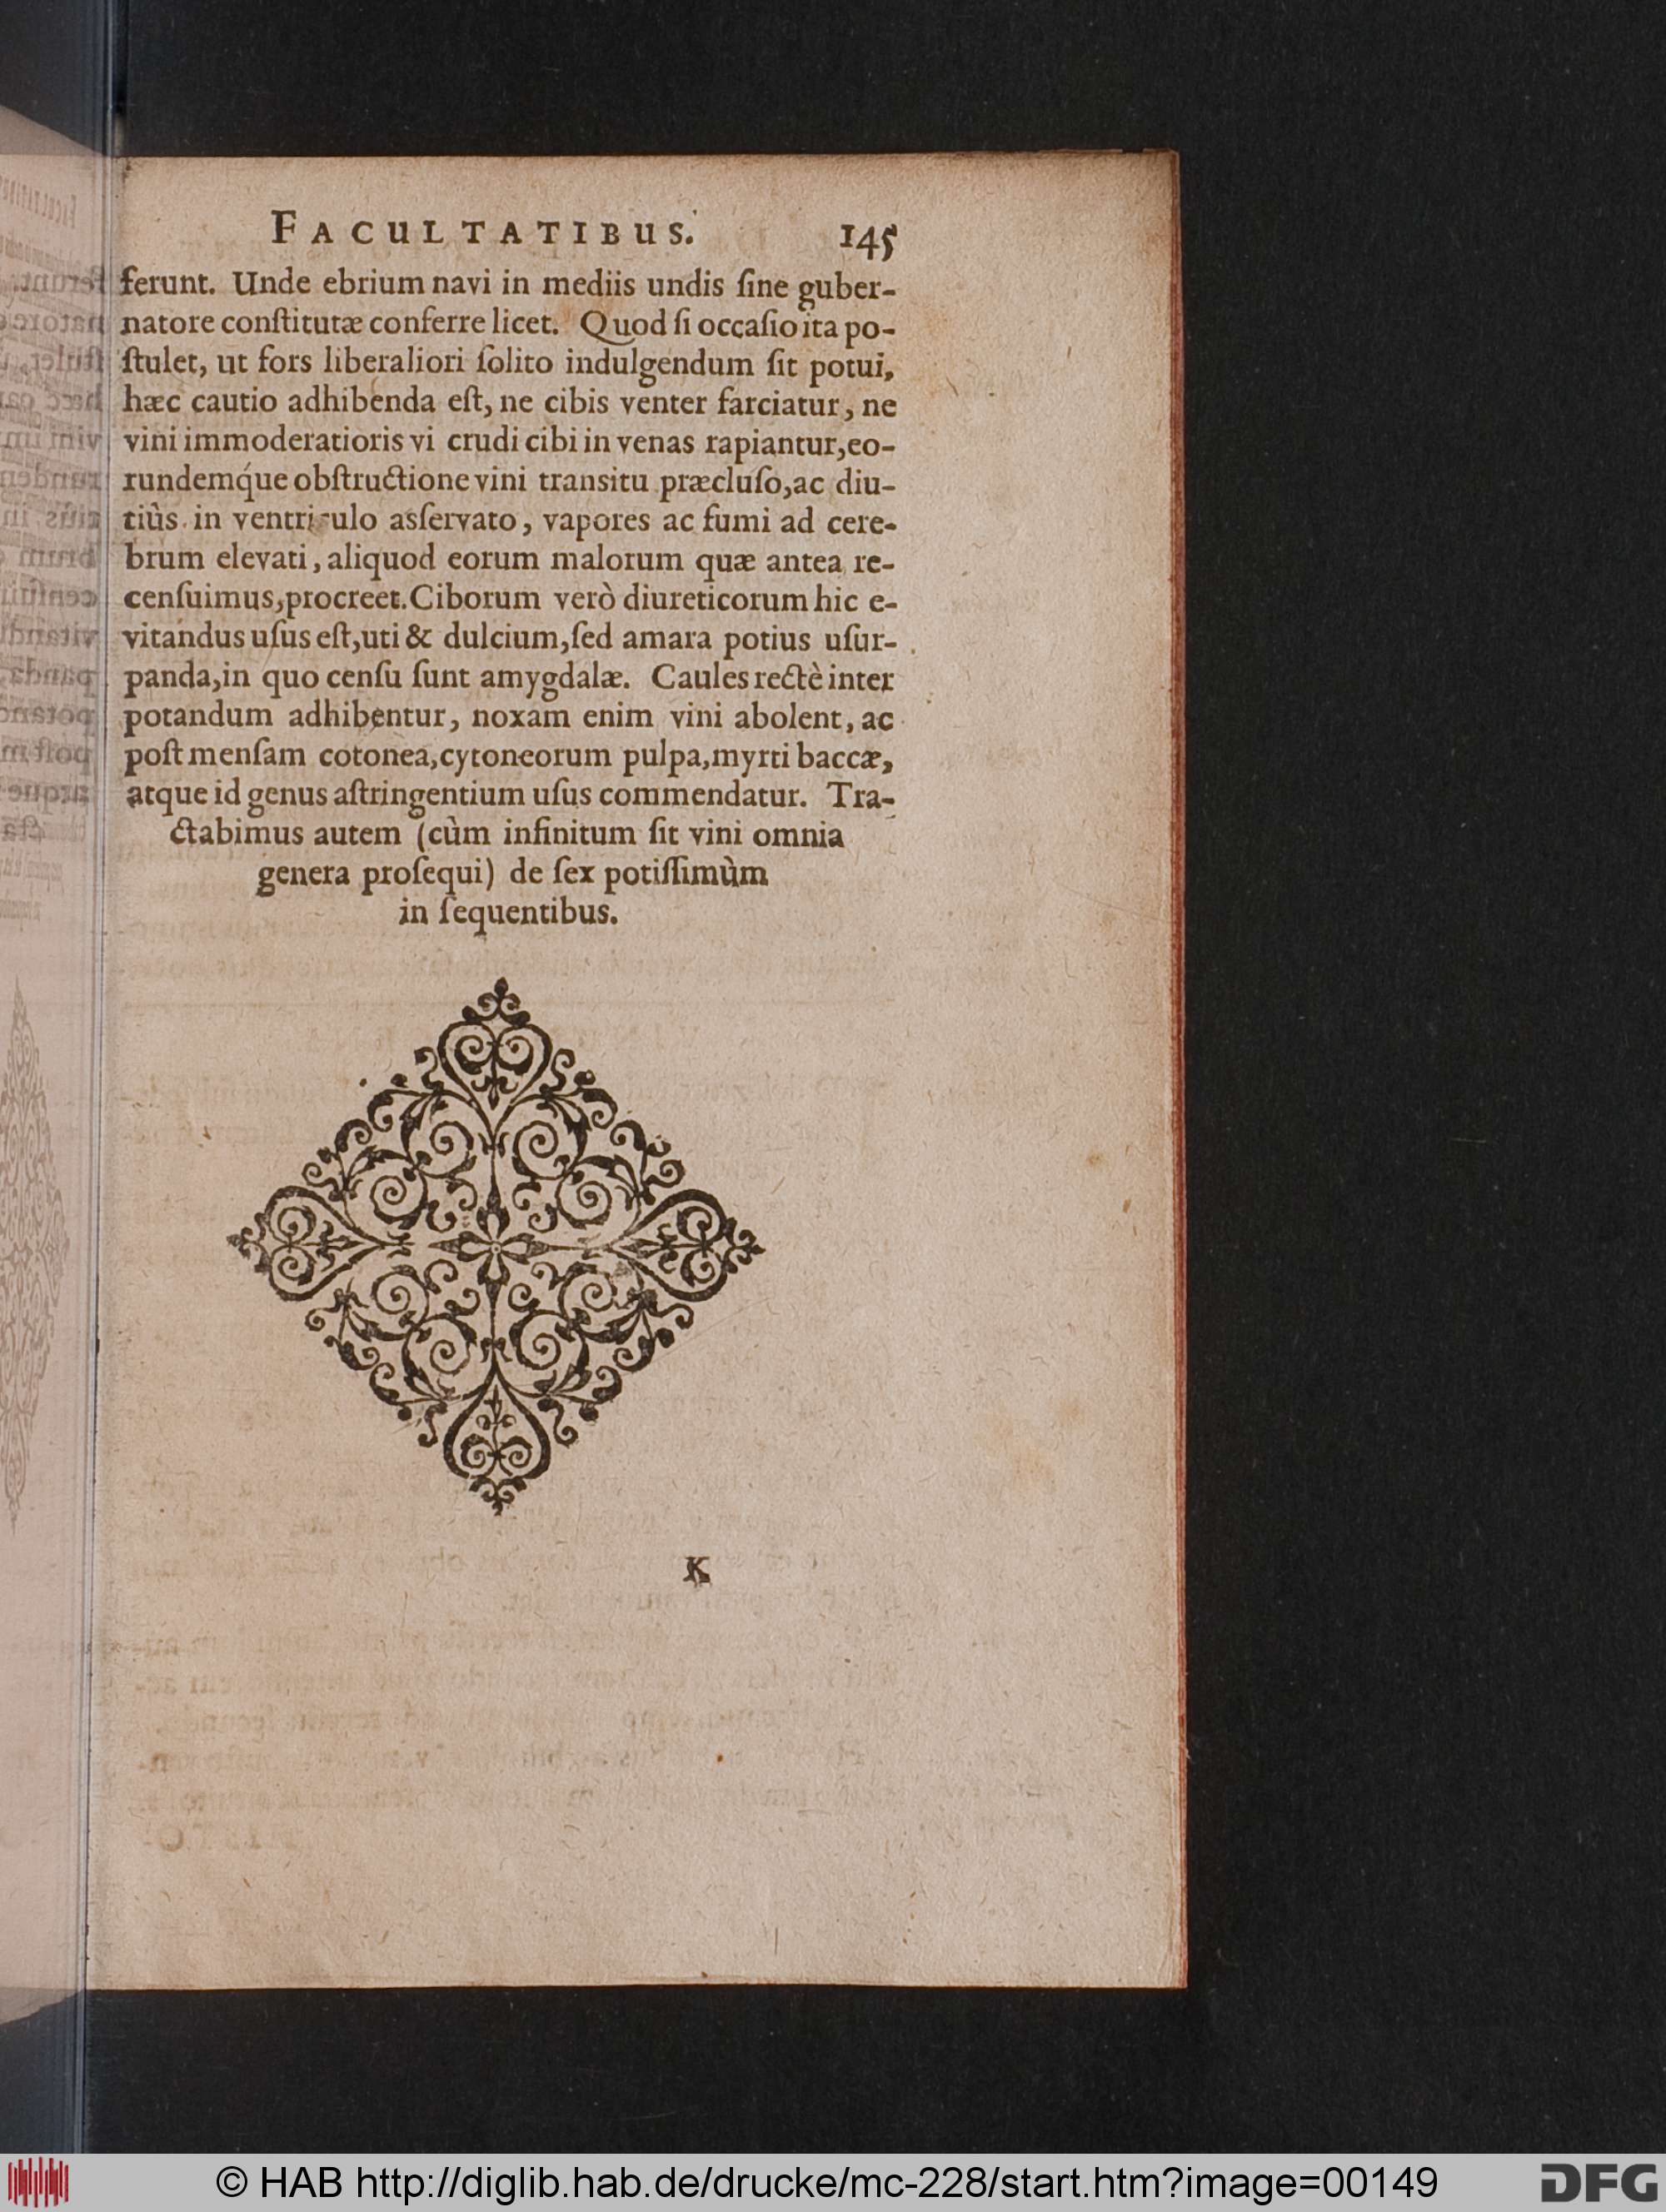 FACULTATIBUS. 145
ferunt. Unde ebrium navi in mediis undis ſine guber-
natore conſtitutæ conferre licet. Quod ſi occaſio ita po-
ſtulet, ut fors liberaliori ſolito indulgendum ſit potui,
hæc cautio adhibenda eſt, ne cibis venter farciatur, ne
vini immoderatioris vi crudi cibi in venas rapiantur, eo-
rundemq́ue obſtructione vini transitu præcluſo, ac diu-
tiùs in ventriculo asſervato, vapores ac fumi ad cere-
brum elevati, aliquod eorum malorum quæ antea re-
cenſuimus, procreet. Ciborum verò diureticorum hic e-
vitandus uſus eſt, uti & dulcium, ſed amara potius uſur-
panda, in quo cenſu ſunt amygdalæ. Caules rectè inter
potandum adhibentur, noxam enim vini abolent, ac
poſt menſam cotonea, cytoneorum pulpa, myrti baccæ,
atque id genus aſtringentium uſus commendatur. Tra-
ctabimus autem (cùm infinitum ſit vini omnia
genera proſequi) de ſex potiſſimùm
in ſequentibus.
K
© HAB http://diglib.hab.de/drucke/mc-228/start.htm?image=00149
DFG